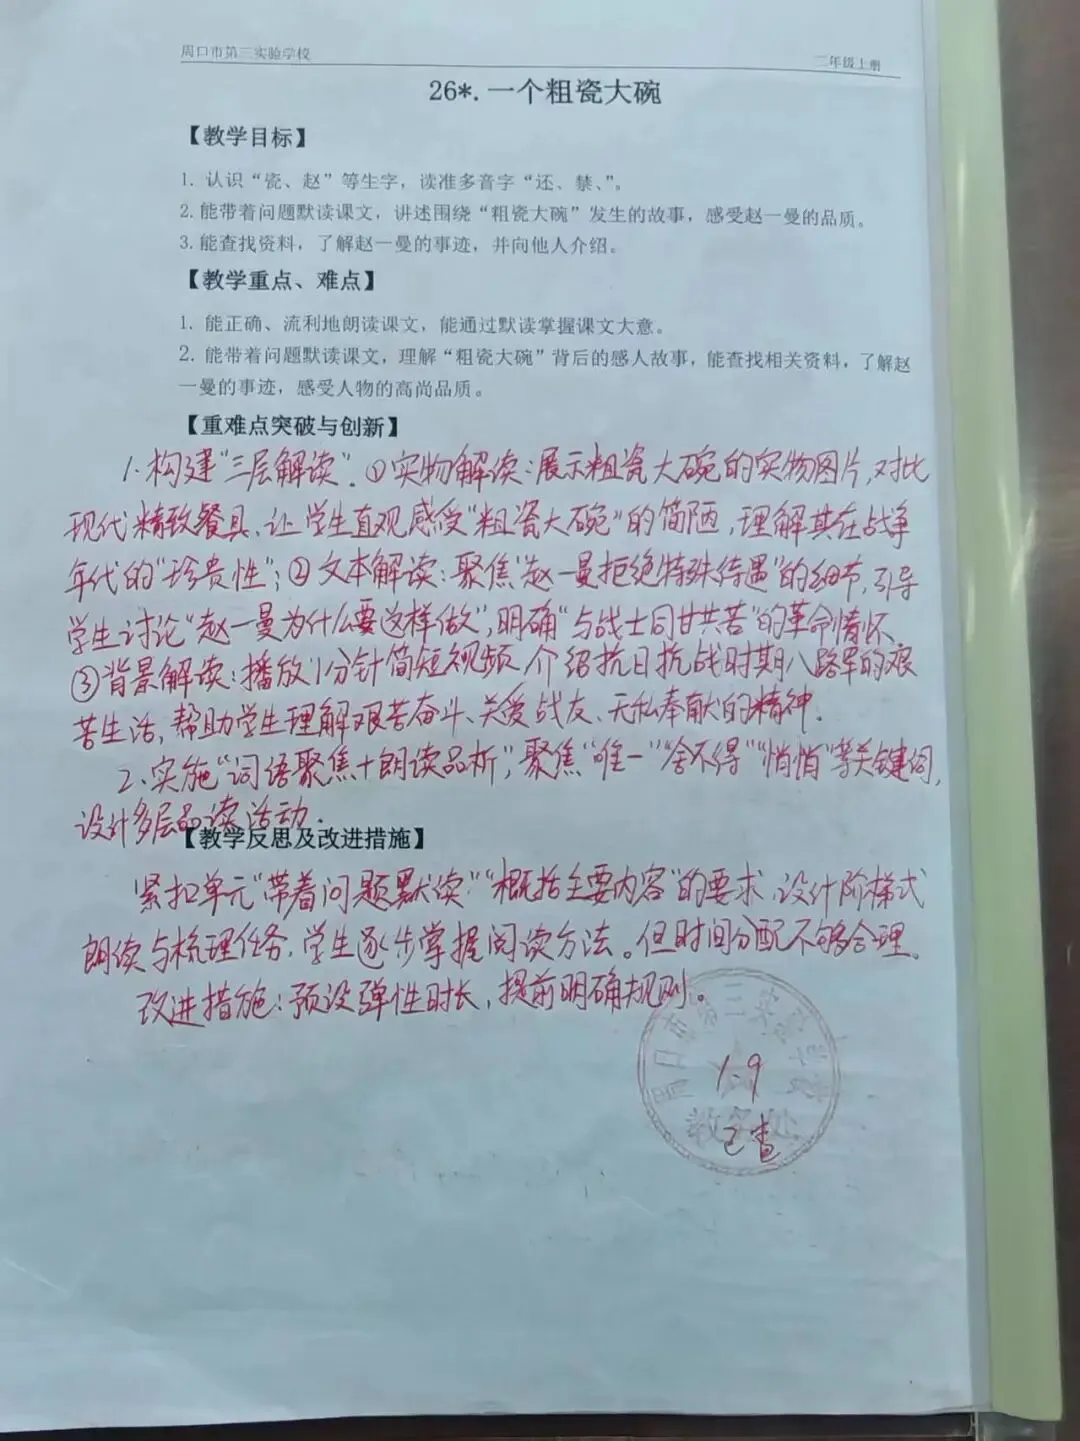 周口市第三实验学校
二年级上册
26*.一个粗瓷大碗
【教学目标】
1. 认识“瓷、赵”等生字，读准多音字“还、禁、”。
2. 能带着问题默读课文，讲述围绕“粗瓷大碗”发生的故事，感受赵一曼的品质。
3. 能查找资料，了解赵一曼的事迹，并向他人介绍。
【教学重点、难点】
1. 能正确、流利地朗读课文，能通过默读掌握课文大意。
2. 能带着问题默读课文，理解“粗瓷大碗”背后的感人故事，能查找相关资料，了解赵
一曼的事迹，感受人物的高尚品质。
【重难点突破与创新】
1、构建“三层解读”。①实物解读：展示粗瓷大碗的实物图片，对比
现代精致餐具，让学生直观感受“粗瓷大碗”的简陋，理解其在战争
年代的“珍贵性”；②文本解读：聚焦“赵一曼拒绝特殊待遇”的细节，引导
学生讨论“赵一曼为什么要这样做”，明确“与战士同甘共苦”的革命情怀
③背景解读：播放1分钟简短视频 介绍抗日抗战时期八路军的艰
苦生活，帮助学生理解艰苦奋斗、关爱战友、无私奉献的精神.
2、实施“词语聚焦+朗读品析”，聚焦“唯一”“舍不得”“悄悄”等关键词，
设计多层品读活动.
【教学反思及改进措施】
紧扣单元“带着问题默读”“概括主要内容”的要求，设计阶梯式
朗读与梳理任务，学生逐步掌握阅读方法。但时间分配不够合理。
改进措施：预设弹性时长，提前明确规则。
周口市第三实验学校
1.9
教务处
已查